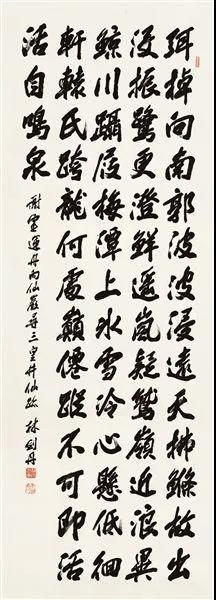 弭棹向南郭波波浸遠天拂鰷故出
沒振鷺更澄鮮遥嵐疑鷲嶺近浪異
鯨川躡屐梅潭上冰雪冷心懸低徊
軒轅氏跨龍何處巔僊蹤不可即活
活自鳴泉
謝靈運舟向仙巖尋三皇井仙跡 林劍丹